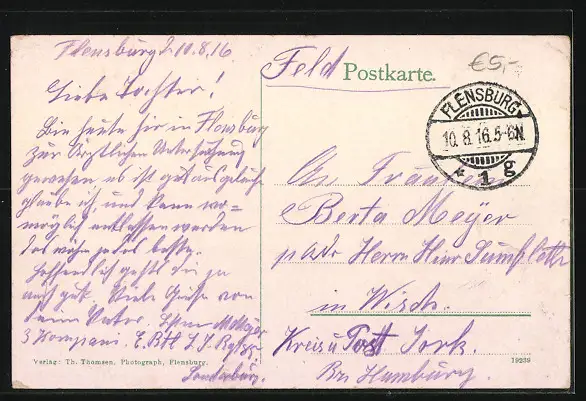 Flensburg d 10.8.16
Liebe Tochter!
Bin heute hir in Flensburg
zur Ärztlichen Untersuchung
gewesen es ist gut
glaube ich und kann wo=
möglich entlassen werden
das wäre ja das beste.
Hoffendlich geht dir ja
auch gut. Viele Grüße von
dein Vater. Meyer
3 Kompani. E. Btl
Sonderburg.
Verlag: Th. Thomsen, Photograph, Flensburg.
€5,-
Feld Postkarte.
FLENSBURG
10.8.16.5-6N
* 1 g
An Fräulein
Berta Meyer
p adr Herrn Hinr
in Wisch.
Kreis u Post Jork.
Bei Hamburg.
19239